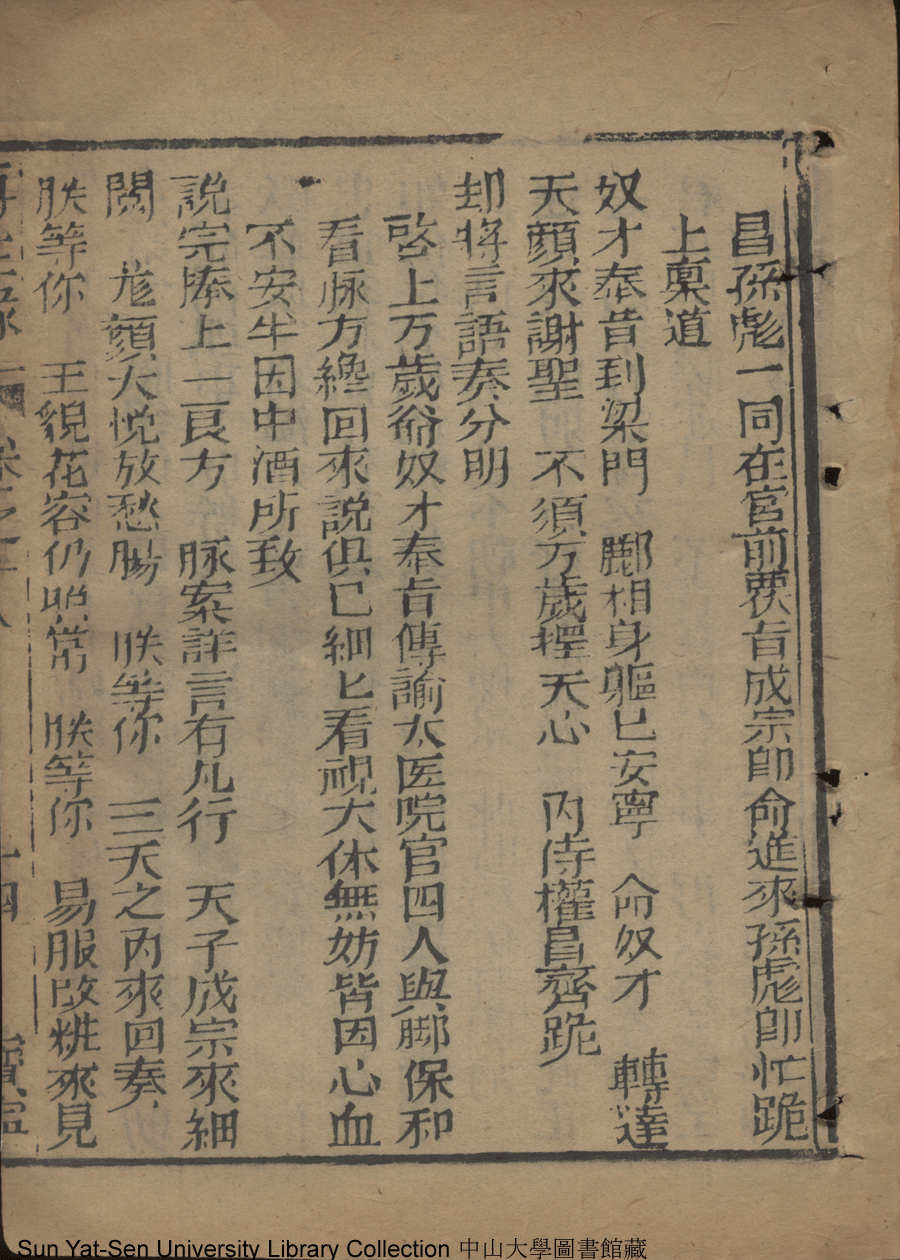 昌孫彪一同在宮前覆旨成宗卽命進來孫彪卽忙跪
上稟道
奴才奉旨到梁門　酈相身軀已安寧　命奴才　轉達
天顔來謝聖　不須万歲挂天心　內侍權昌齊跪
却將言語奏分明
啓上万歲爺奴才奉旨傳諭太医院官四人與酈保和
看脉方纔回來說俱已細匕看視大体無妨皆因心血
不安牛因中酒所致
說完捧上一良方　脉案詳言有几行　天子成宗來細
閱　龙顔大悅放愁腸　朕等你　三天之內來回奏
朕等你　王貌花容仍照常　朕等你　易服改粧來見
再生緣　卷之十八　十四　寶寧
Sun Yat-Sen University Library Collection 中山大學圖書館藏